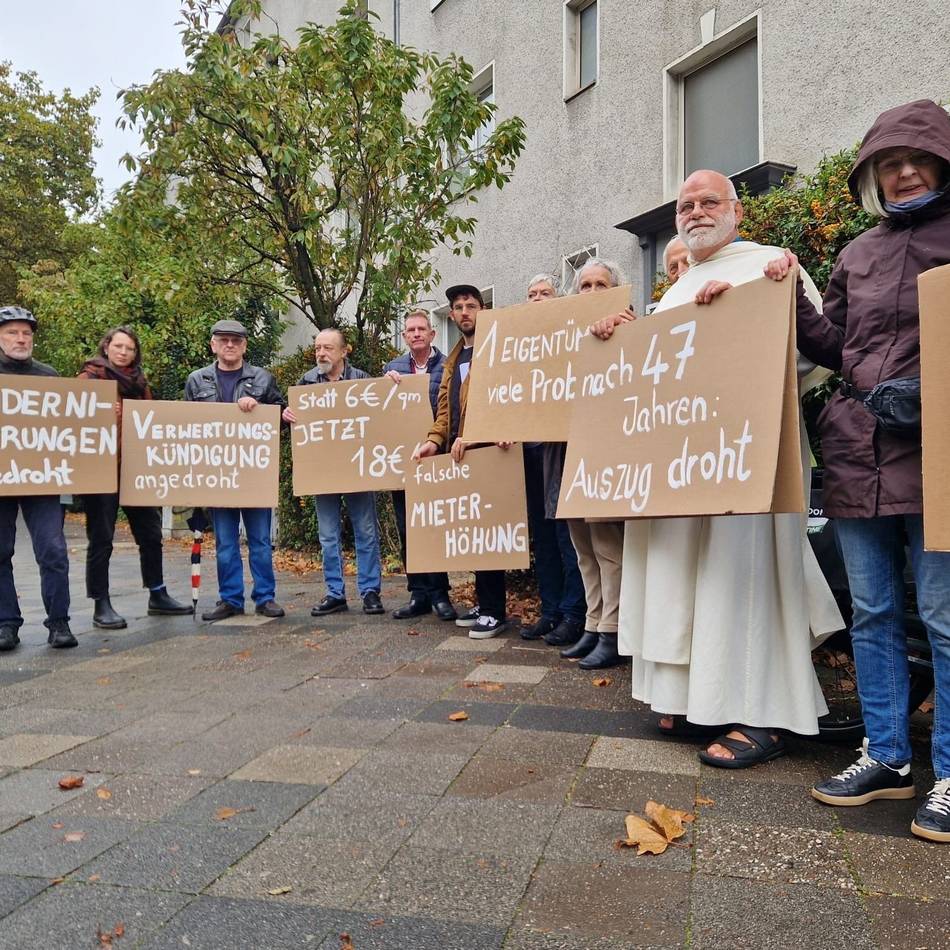 DERNI-
RUNGEN
edroht
VERWERTUNGS-
KÜNDIGUNG
angedroht
Statt 6€/qm
JETZT
18€
falsche
MIETER-
HÖHUNG
1 EIGENTÜM
viele Prob
nach 47
Jahren:
Auszug droht